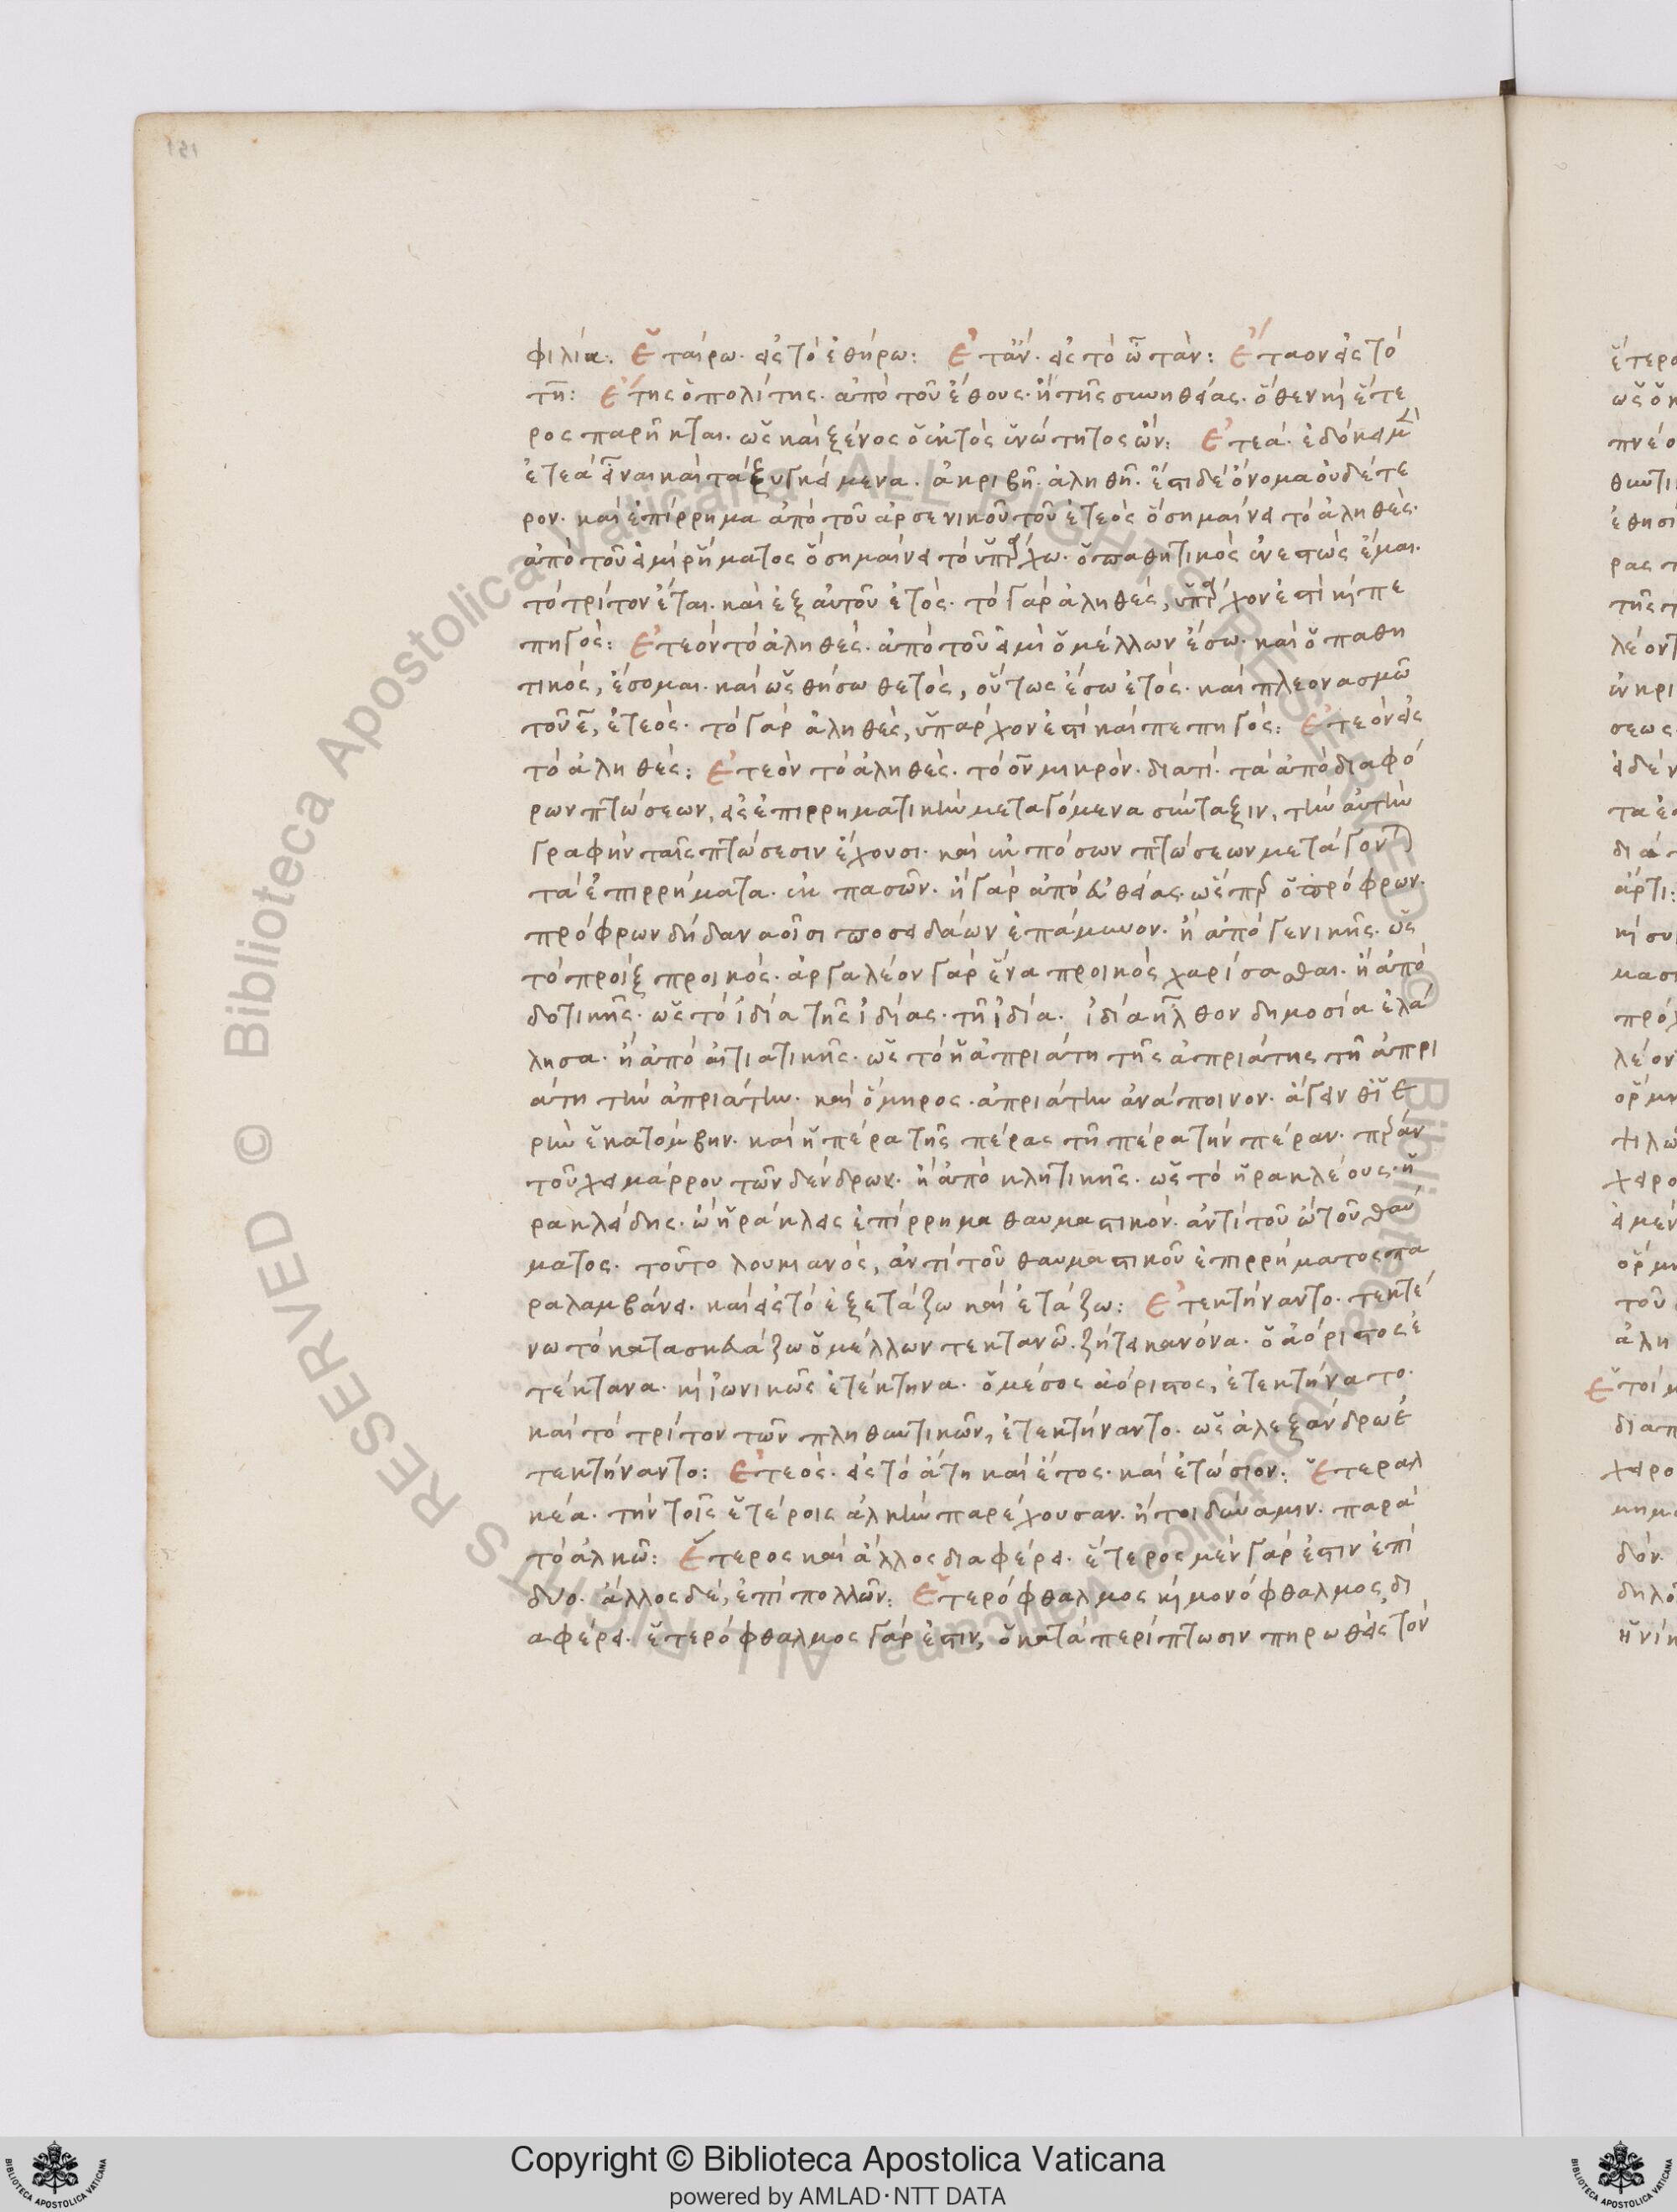 φιλία. Ἑταίρω. εἰς τὸ ἐθήρω: Ἐτάν. εἰς τὸ ὦ τὰν: Ἔταον εἰς τὸ
τῆ: Ἔτης ὁ πολίτης. ἀπὸ τοῦ ἔθους. ἢ τῆς συνηθείας. ὅθεν καὶ ἕτε
ρος παρῆκται. ὡς καὶ ξένος ὁ ἐκτὸς ἑνώτητος ὤν: Ἐτεά. ἐδόκει μ
ἐτεὰ εἶναι καὶ τὰ ξυγκείμενα. ἀκριβῆ. ἀληθῆ. ἔστι δὲ ὄνομα οὐδέτε
ρον. καὶ ἐπίρρημα ἀπὸ τοῦ ἀρσενικοῦ τοῦ ἐτεὸς ὃ σημαίνει τὸ ἀληθὲς.
ἀπὸ τοῦ εἰμὶ ῥήματος ὃ σημαίνει τὸ ὑπάρχω. ὁ παθητικὸς ἐνεστὼς ἔμαι.
τὸ τρίτον ἔται. καὶ ἐξ αὐτοῦ ἐτὸς. τὸ γὰρ ἀληθὲς, ὑπάρχον ἐστὶ καὶ πε
πηγὸς: Ἐτεὸν τὸ ἀληθὲς. ἀπὸ τοῦ εἰμὶ ὁ μέλλων ἔσω. καὶ ὁ παθη
τικὸς, ἔσομαι. καὶ ὡς θήσω θετὸς, οὕτως ἔσω ἐτὸς. καὶ πλεονασμῶ
τοῦ ε, ἐτεὸς. τὸ γὰρ ἀληθὲς, ὑπάρχον ἐστὶ καὶ πεπηγὸς: Ἐτεὸν εἰς
τὸ ἀληθὲς: Ἐτεὸν τὸ ἀληθὲς. τὸ ον μικρὸν. διατί. τὰ ἀπὸ διαφό
ρων πτώσεων, εἰς ἐπιρρηματικὴν μεταγόμενα σύνταξιν, τὴν αὐτὴν
γραφὴν ταῖς πτώσεσιν ἔχουσι. καὶ ἐκ πόσων πτώσεων μετάγονται
τὰ ἐπιρρήματα. ἐκ πασῶν. ἢ γὰρ ἀπὸ εὐθείας. ὥσπερ ὁ πρόφρων.
πρόφρων δὴ δαναοῖσι ποσειδάων ἐπάμυνον. ἢ ἀπὸ γενικῆς. ὡς
τὸ προὶξ προικὸς. ἀργαλέον γὰρ ἕνα προικὸς χαρίσασθαι. ἢ ἀπὸ
δοτικῆς. ὡς τὸ ἰδία τῆς ἰδίας. τῆ ἰδία. ἰδία ἦλθον δημοσία ἐλά
λησα. ἢ ἀπὸ αἰτιατικῆς. ὡς τὸ ἡ ἀπριάτη τῆς ἀπριάτης τῆ ἀπρι
άτη τὴν ἀπριάτην. καὶ ὅμηρος. ἀπριάτην ἀνάποινον. ἄγειν θ' ἱε
ρὴν ἑκατόμβην. καὶ ἡ πέρα τῆς πέρας τῆ πέρα τὴν πέραν. πέραν
τοῦ χειμάρρου τῶν δένδρων. ἢ ἀπὸ κλητικῆς. ὡς τὸ ἡρακλέους. ἡ
ρακλείδης. ὦ ἡράκλεις ἐπίρρημα θαυμαστικόν. ἀντὶ τοῦ ὢ τοῦ θαύ
ματος. τοῦτο λουκιανὸς, ἀντὶ τοῦ θαυμαστικοῦ ἐπιρρήματος πα
ραλαμβάνει. καὶ εἰς τὸ ἐξετάζω καὶ ἐτάζω: Ἐτεκτήναντο. τεκτέ
νω τὸ κατασκευάζω ὁ μέλλων τεκτανῶ. ζήτει κανόνα. ὁ ἀόριστος ἐ
τέκτανα. καὶ ἰωνικῶς ἐτέκτηνα. ὁ μέσος ἀόριστος, ἐτεκτήνατο.
καὶ τὸ τρίτον τῶν πληθυντικῶν, ἐτεκτήναντο. ὡς ἀλεξάνδρω ἐ
τεκτήναντο: Ἐτεὸς. εἰς τὸ ἄτη καὶ ἔτος. καὶ ἐτώσιον: Ἑτεραλ
κέα. τὴν τοῖς ἑτέροις ἀλκὴν παρέχουσαν. ἤτοι δύναμιν. παρὰ
τὸ ἀλκῶ: Ἕτερος καὶ ἄλλος διαφέρει. ἕτερος μὲν γὰρ ἐστιν ἐπὶ
δύο. ἄλλος δὲ, ἐπὶ πολλῶν: Ἑτερόφθαλμος καὶ μονόφθαλμος, δι
αφέρει. ἑτερόφθαλμος γὰρ ἐστιν, ὁ κατὰ περίπτωσιν πηρωθεὶς τὸν
Copyright © Biblioteca Apostolica Vaticana
powered by AMLAD·NTT DATA